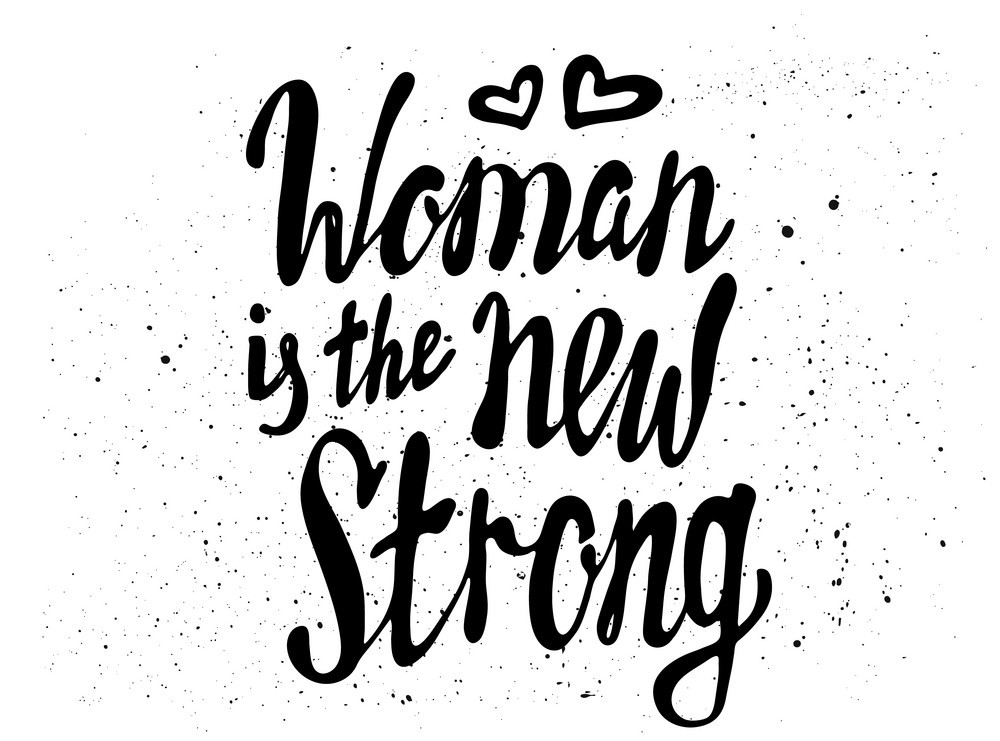 Woman
is the new
Strong